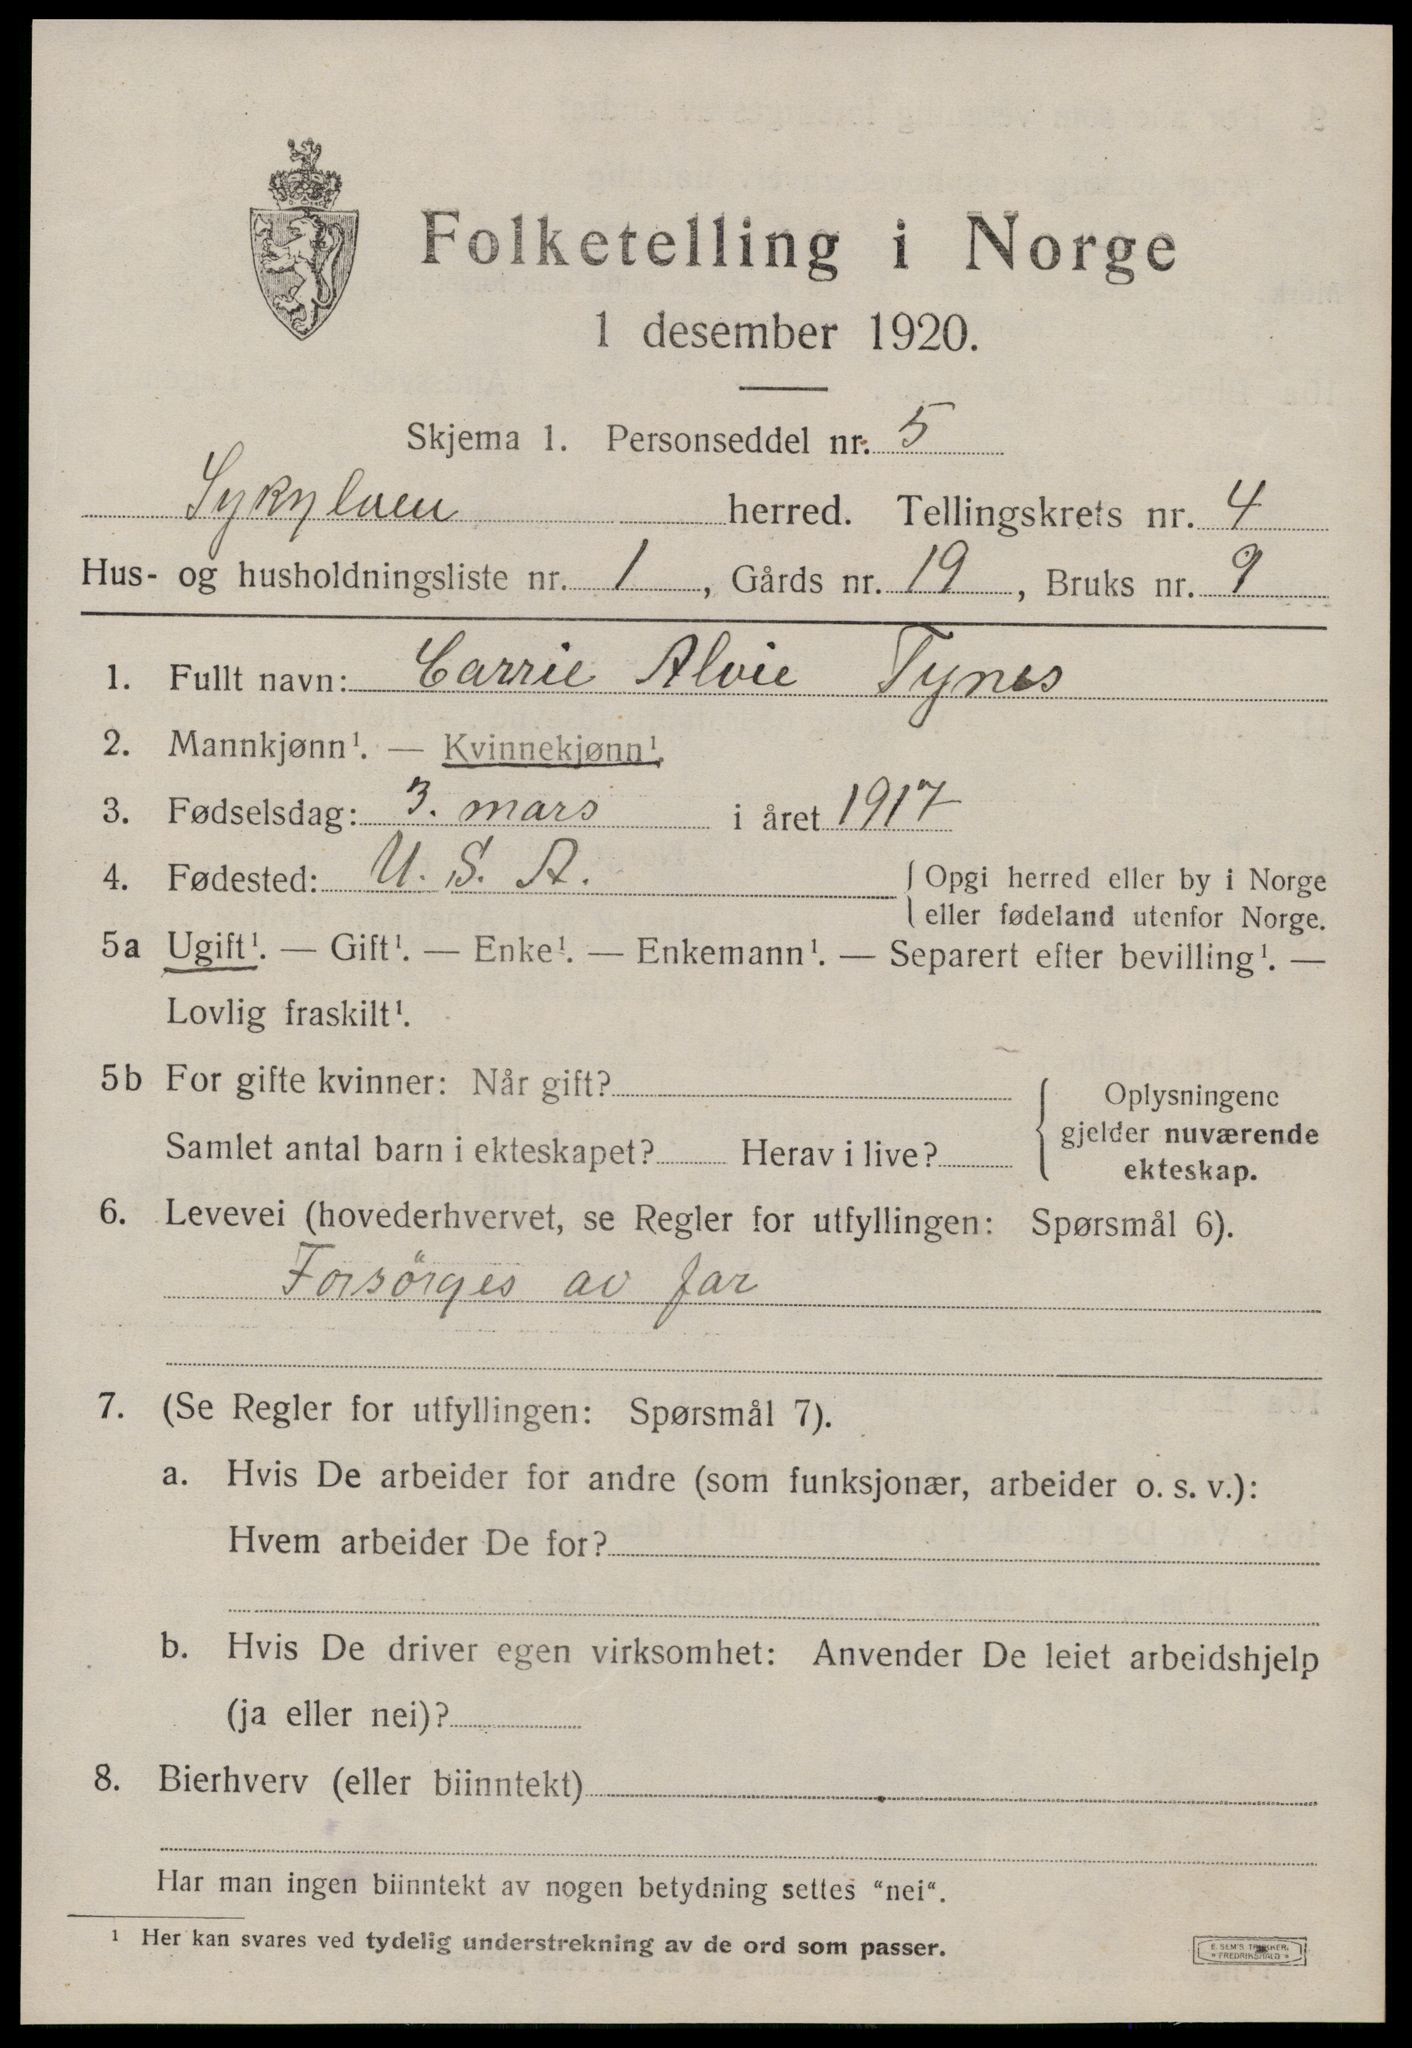 Folketelling i Norge
1 desember 1920.
Skjema 1. Personseddel nr. 5
Sykylven herred. Tellingskrets nr. 4
Hus- og husholdningsliste nr. 1, Gårds nr. 19, Bruks nr. 9
1. Fullt navn: Carrie Alvie Tynes
2. Mannkjønn¹. — Kvinnekjønn¹.
3. Fødselsdag: 3. mars i året 1917
4. Fødested: U. S. A. { Opgi herred eller by i Norge
eller fødeland utenfor Norge.
5a Ugift¹. — Gift¹. — Enke¹. — Enkemann¹. — Separert efter bevilling¹. —
Lovlig fraskilt¹.
5b For gifte kvinner: Når gift?
Samlet antal barn i ekteskapet? Herav i live?
Oplysningene
gjelder nuværende
ekteskap.
6. Levevei (hovederhvervet, se Regler for utfyllingen: Spørsmål 6).
Forsörges av far
7. (Se Regler for utfyllingen: Spørsmål 7).
a. Hvis De arbeider for andre (som funksjonær, arbeider o. s. v.):
Hvem arbeider De for?
b. Hvis De driver egen virksomhet: Anvender De leiet arbeidshjelp
(ja eller nei)?
8. Bierhverv (eller biinntekt)
Har man ingen biinntekt av nogen betydning settes "nei".
¹ Her kan svares ved tydelig understrekning av de ord som passer.
E. SEM'S TRYKKERI
FREDRIKSHALD